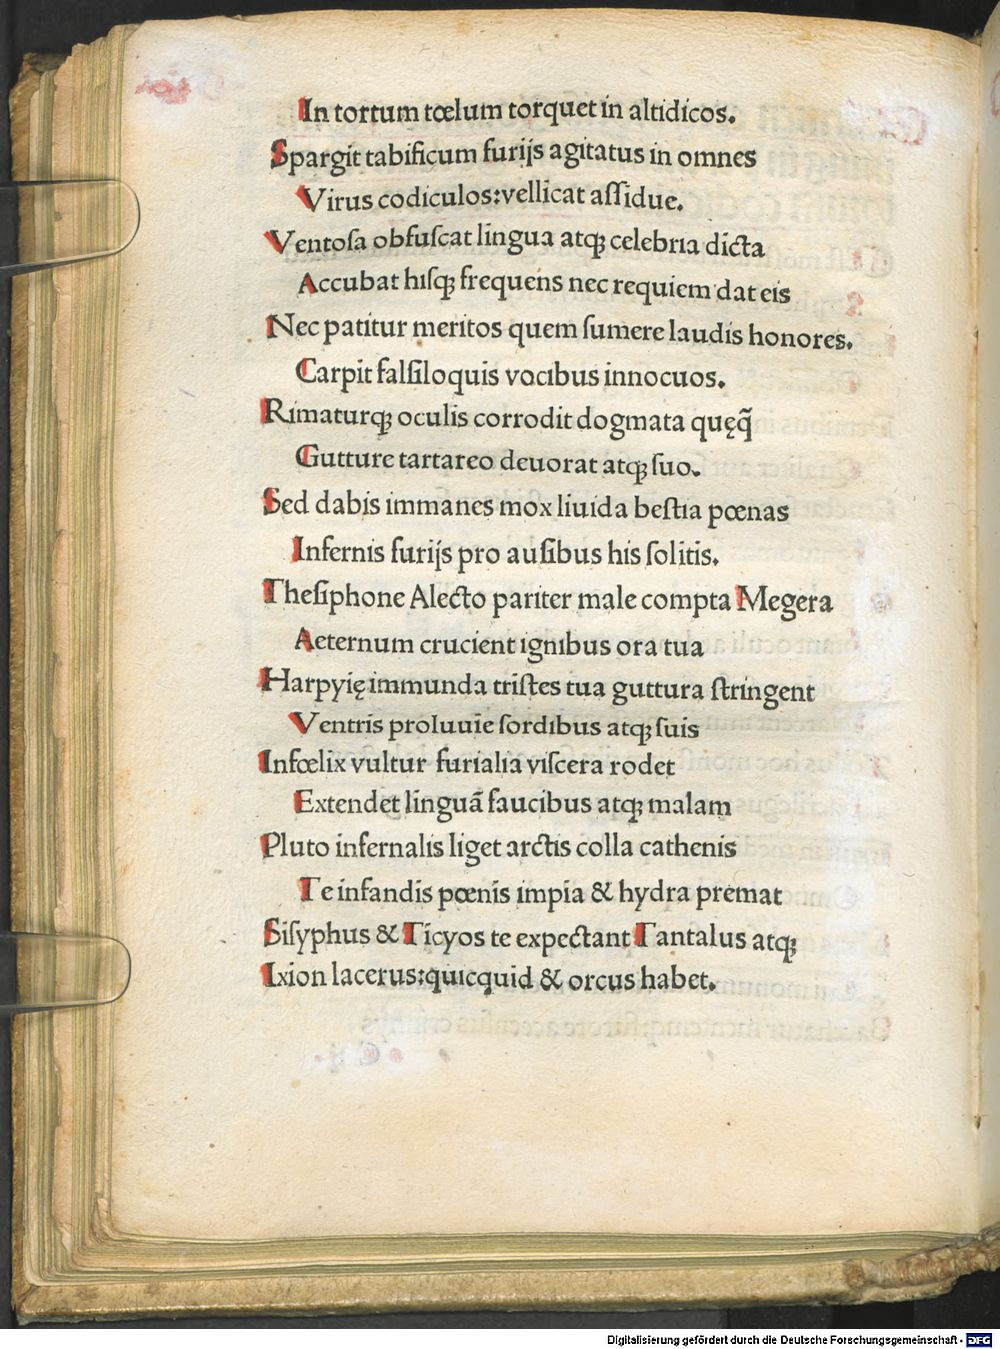 In tortum tœlum torquet in altidicos.
Spargit tabificum furijs agitatus in omnes
Virus codiculos:vellicat aſſidue.
Ventoſa obfuſcat lingua atqꝫ celebria dicta
Accubat hiſqꝫ frequens nec requiem dat eis
Nec patitur meritos quem ſumere laudis honores.
Carpit falſiloquis vocibus innocuos.
Rimaturqꝫ oculis corrodit dogmata quęq̃
Gutture tartareo deuorat atqꝫ ſuo.
Sed dabis immanes mox liuida beſtia pœnas
Infernis furijs pro auſibus his ſolitis.
Theſiphone Alecto pariter male compta Megera
Aeternum crucient ignibus ora tua
Harpyię immunda triſtes tua guttura ſtringent
Ventris proluuie ſordibus atqꝫ ſuis
Infœlix vultur furialia viſcera rodet
Extendet linguã faucibus atqꝫ malam
Pluto infernalis liget arctis colla cathenis
Te infandis pœnis impia & hydra premat
Siſyphus & Ticyos te expectant Tantalus atqꝫ
Ixion lacerus:quicquid & orcus habet.
Digitalisierung gefördert durch die Deutsche Forschungsgemeinschaft - DFG